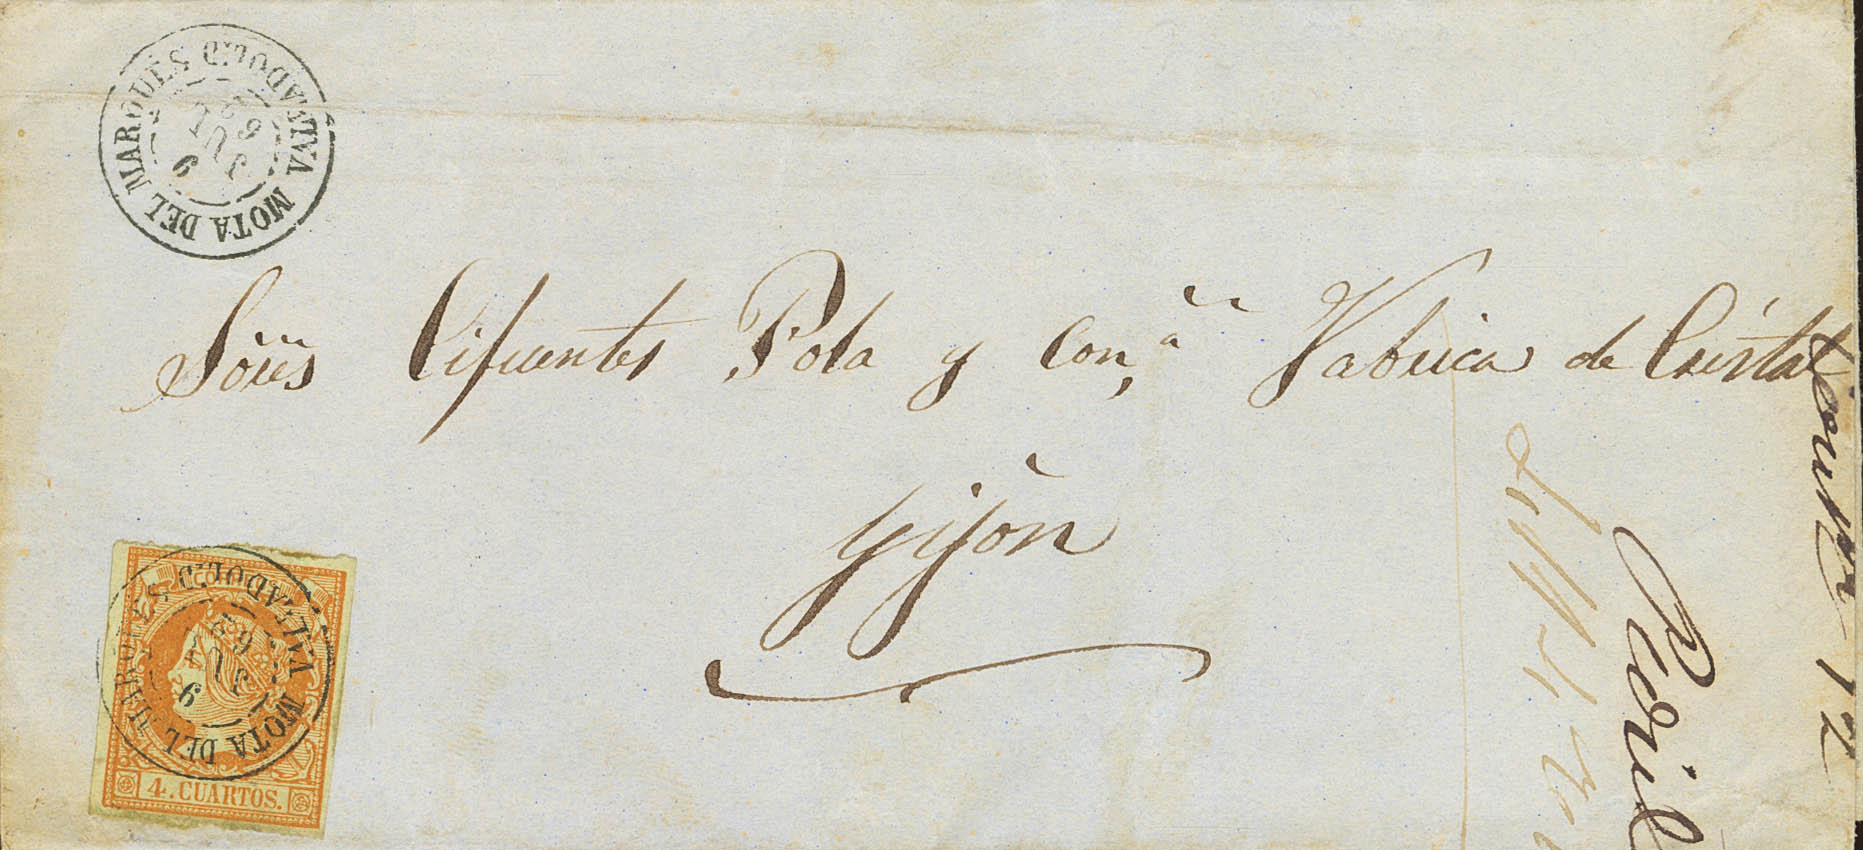 MOTA DEL MARQUÉS VALLADOLID
9 JUL 62
Sōres Cifuentes Pola y Con,ª Fabrica de Cristal
Gijon
MOTA DEL MARQUÉS VALLADOLID
9 JUL 62
4. CUARTOS.
12